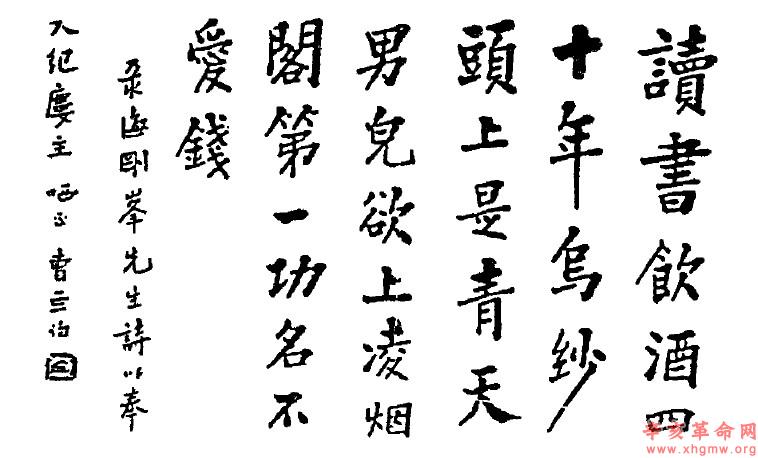 讀書飲酒四
十年烏紗
頭上是青天
男兒欲上凌烟
閣第一功名不
愛錢
录海剛峯先生詩以奉
人纪廔主 哂正 曹亞伯
辛亥革命网
www.xhgmw.org